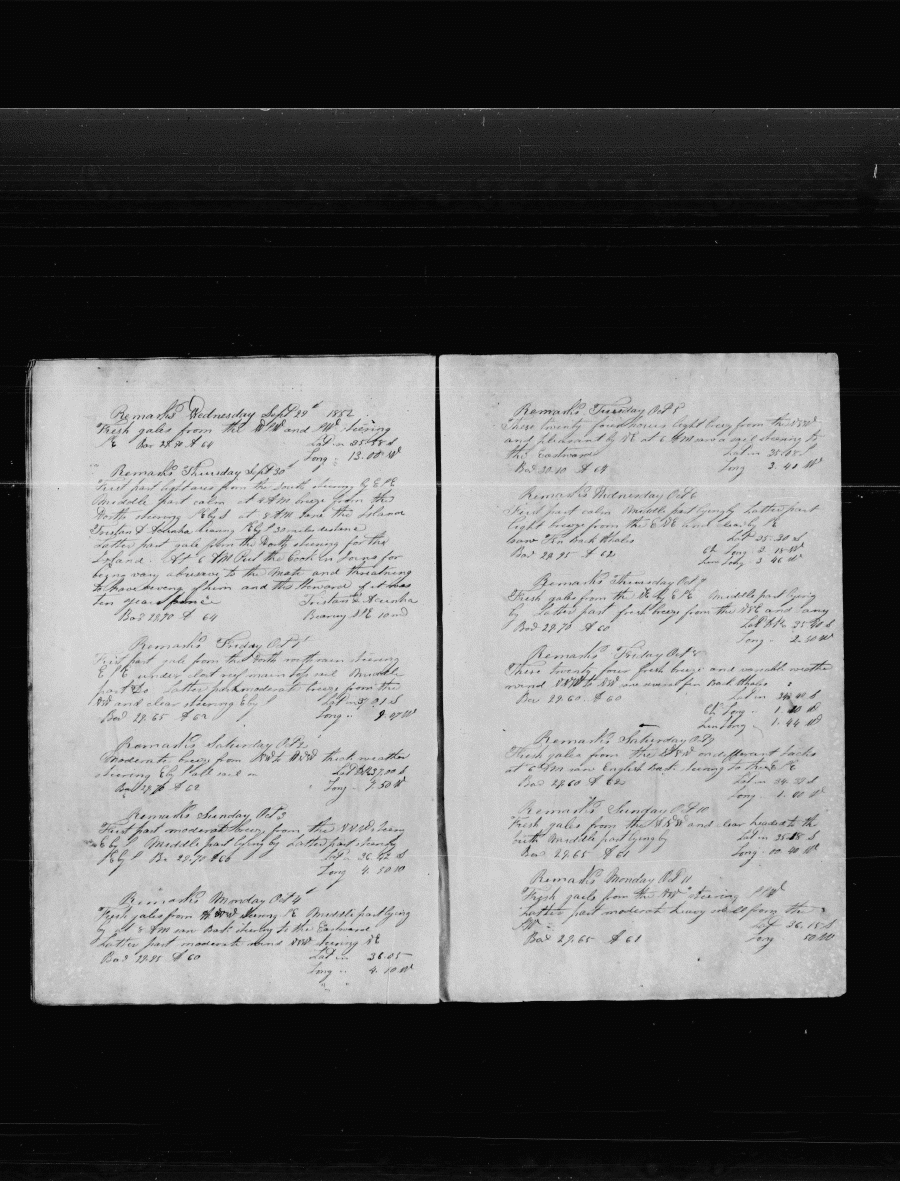 Remarks Wednesday Sept 29th 1852
Fresh gales from the and steering
E Bar 29.70 A 64 Lat in 35.48 S
Long " 13.00 W
Remarks Thursday Sept 30th
First part light ares from the South steering by E
Middle part calm at 4 AM breeze from the
North steering E by S at 8 AM the Island
Tristan d Acunha bearing E by 30 miles distance
Latter part gale from the North steering for the
Island. At 6 AM Put the Cook in Irons for
being very abusive to the Mate and thretning
to have revenge of him and the Steward if it was
ten years Tristan d Acunha
Bar 29.70 A 64 Bearing 10 m
Remarks Friday Oct 1st
First part gale from the North with rain steering
E under close reef main top sail Middle
part Do Latter part moderate breeze from the
and clear steering E by S Lat in 37.01 S
Bar 29.65 A 62 Long " 9.47 W
Remarks Saturday Oct 2
Moderate breeze from to thick weather
steering E by S all sail on Lat 37.00 S
Bar 29.70 A 62 Long " 7.50 W
Remarks Sunday Oct 3
First part moderate breeze from the steering
E by S Middle part lying by Latter part steering
E by S Bar 29.70 A 60 Lat in 36.42 S
Long 4.50.00
Remarks Monday Oct 4th
Fresh gales from steering E Middle part lying
by at 8 AM saw Bark steering to the Eastward
Latter part moderate wind steering
Bar 29.95 A 60 Lat in 36.05
Long " 4.10 W
Remarks Tuesday Oct 5
These twenty four hours light breeze from the
and pleasant by at 6 AM saw a sail steering to
the Eastward Lat in 35.48 S
Bar 30.10 A 64 Long 3.40 W
Remarks Wednesday Oct 6
First part calm Middle part lying by Latter part
light breeze from the and clear by
saw Fin back Whales Lat 35.20 S
Bar 29.95 A 62 Ch Long 2.18 W
Lun Long 3.46 W
Remarks Thursday Oct 7
Fresh gales from the by E Middle part lying
by Latter part fresh breeze from the and
Bar 29.70 A 60 Lat 35 S
Long " 2.30 W
Remarks Friday Oct 8
These twenty four fresh breeze and variable weather
wind to saw fin Back Whales
Bar 29.60 A 60 Lat in 34.40 S
Ch Long " 1.20 W
Lun Long " 1.44 W
Remarks Saturday Oct 9
Fresh gales from the on different tacks
at 6 AM saw English Bark steering to the
Bar 29.60 A 62 Lat in 34.38 S
Long " 1.00 W
Remarks Sunday Oct 10
Fresh gales from the and clear headed to the
South Middle part lying by Lat in 35.18 S
Bar 29.65 A 61 Long 00.40 W
Remarks Monday Oct 11
Fresh gales from the steering
Latter part moderate heavy swell from the
Lat 36.18 S
Bar 29.65 A 61 Long 50 W